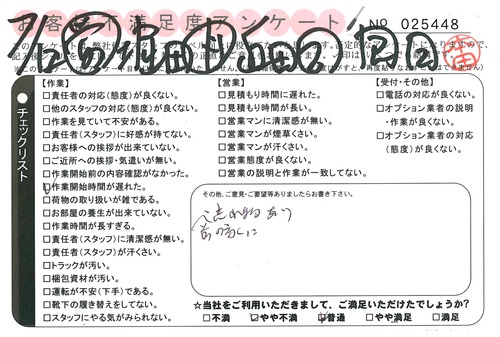 お客様不満足度アンケート
No 025448
チェックリスト
【作業】
□責任者の対応(態度)が良くない。
□他のスタッフの対応(態度)が良くない。
□作業を見ていて不安がある。
□責任者(スタッフ)に好感が持てない。
□お客様への挨拶が出来ていない。
□ご近所への挨拶・気遣いが無い。
□作業開始前の内容確認がなかった。
□作業開始時間が遅れた。
□荷物の取り扱いが雑である。
□お部屋の養生が出来ていない。
□作業時間が長すぎる。
□責任者(スタッフ)に清潔感が無い。
□責任者(スタッフ)が汗くさい。
□トラックが汚い。
□梱包資材が汚い。
□運転が不安(下手)である。
□靴下の履き替えをしてない。
□スタッフにやる気がみられない。
【営業】
□見積もり時間に遅れた。
□見積もり時間が長い。
□営業マンに清潔感が無い。
□営業マンが煙草くさい。
□営業マンが汗くさい。
□営業態度が良くない。
□営業の説明と作業が一致してない。
【受付・その他】
□電話の対応が良くない。
□オプション業者の説明・作業が良くない。
□オプション業者の対応(態度)が良くない。
その他、ご意見・ご要望等ありましたらお書き下さい。
忘れ物あり
☆当社をご利用いただきまして、ご満足いただけたでしょうか?
□不満 □やや不満 □普通 □やや満足 □満足